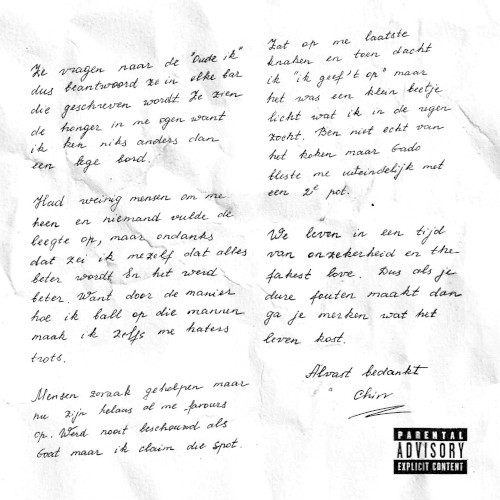 Ze vragen naar de "Oude ik"
dus beantwoord ze in elke bar
die geschreven wordt. Ze zien
de honger in me ogen want
ik ken niks anders dan
een lege bord.
Had weinig mensen om me
heen en niemand vulde de
leegte op, maar ondanks
dat zei ik mezelf dat alles
beter wordt En het werd
beter. Want door de manier
hoe ik ball op die mannun
maak ik zelfs me haters
trots.
Mensen zovaak geholpen maar
nu zijn helaas al me favours
op. Werd nooit beschouwd als
Goat maar ik claim die spot.
Zat op me laatste
knaken en toen dacht
ik "ik geef't op" maar
het was een klein beetje
licht wat ik in de regen
zocht. Ben niet echt van
het koken maar Gado
bleste me uiteindelijk met
een 2e pot.
We leven in een tijd
van onzekerheid en the
fakest love. Dus als je
dure fouten maakt dan
ga je merken wat het
leven kost.
Alvast bedankt
Chivv
PARENTAL
ADVISORY
EXPLICIT CONTENT